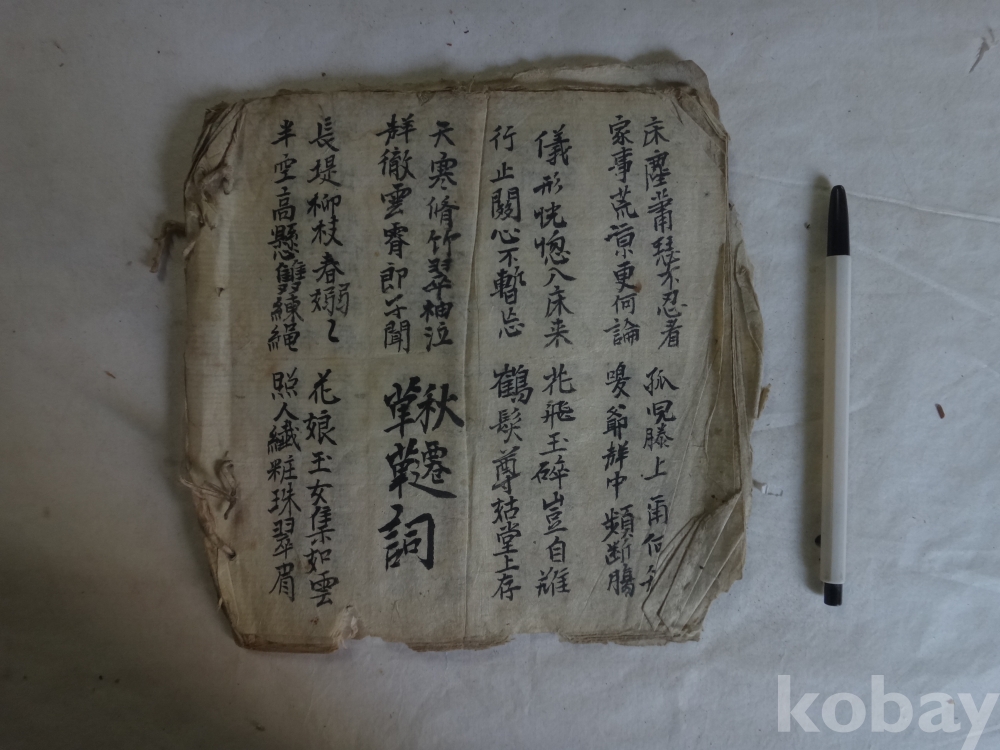 床塵蕭瑟不忍看 孤兒膝上
家事荒凉更何論 喚爺群中頻斷膓
儀形恍惚入床来 花飛玉碎豈自
行止關心不暫忘 鶴髮尊姑堂上存
天寒脩竹翠袖泣
群徹雲霄即子聞
鞦韆詞
長堤柳枝春嫋〻 花娘玉女集如雲
半空高懸雙練繩 照人纖粧珠翠眉
kobay